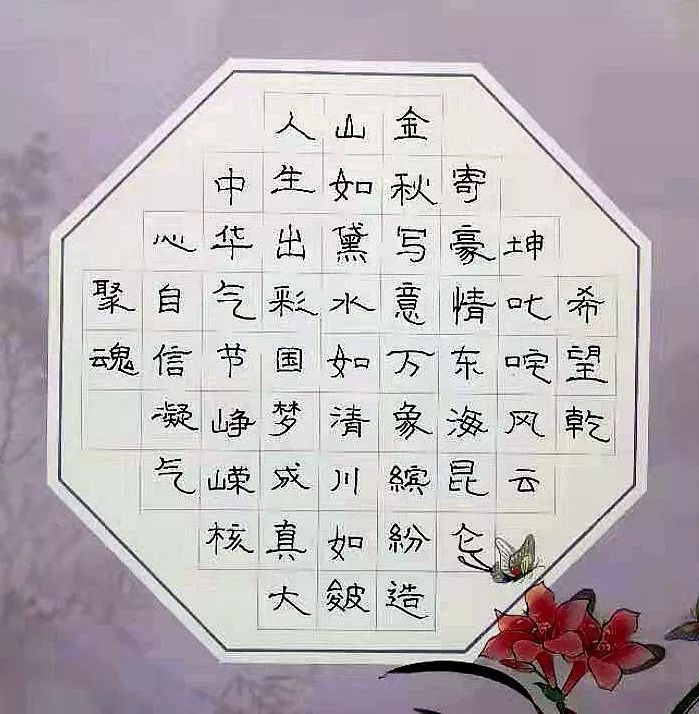 希望乾
坤叱咤风云
寄豪情东海昆仑
金秋写意万象繽紛造
山如黛水如清川如皴
人生出彩国梦成真大
中华气节峥嵘核
心自信凝气
聚魂